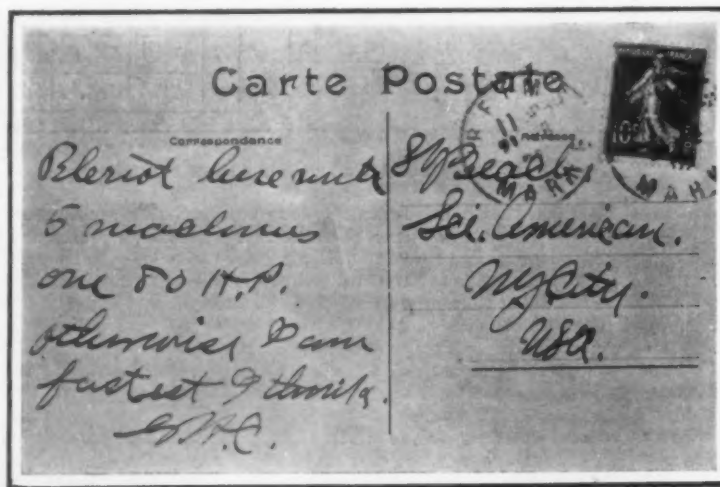 Carte Postale
Correspondance
Bleriot here with
5 machines
one 80 H.P.
otherwise I am
fastest I think.
G.H.C.
Adresse
S Beach,
Sci. American.
NY City.
USA.
10
REIMS
MARNE